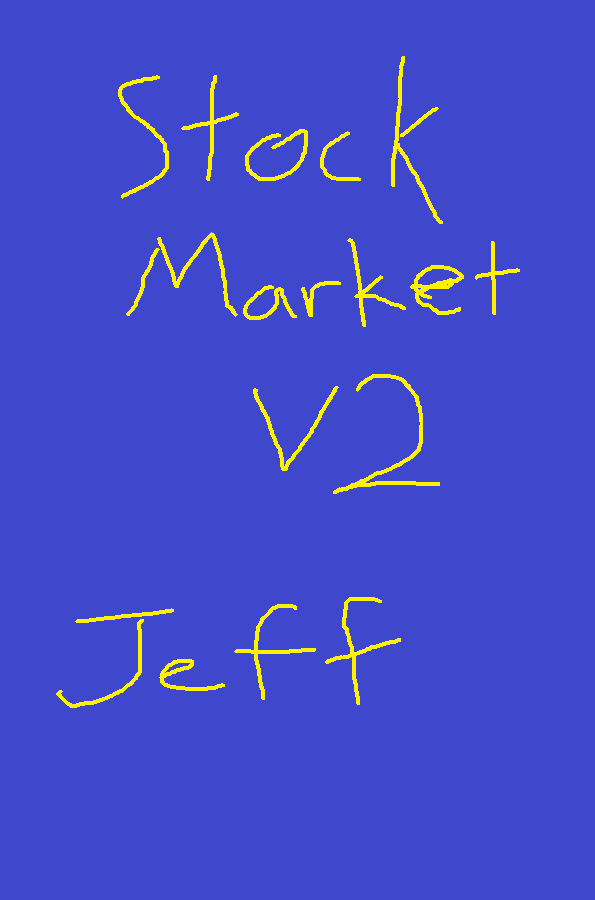 Stock
Market
V2
Jeff